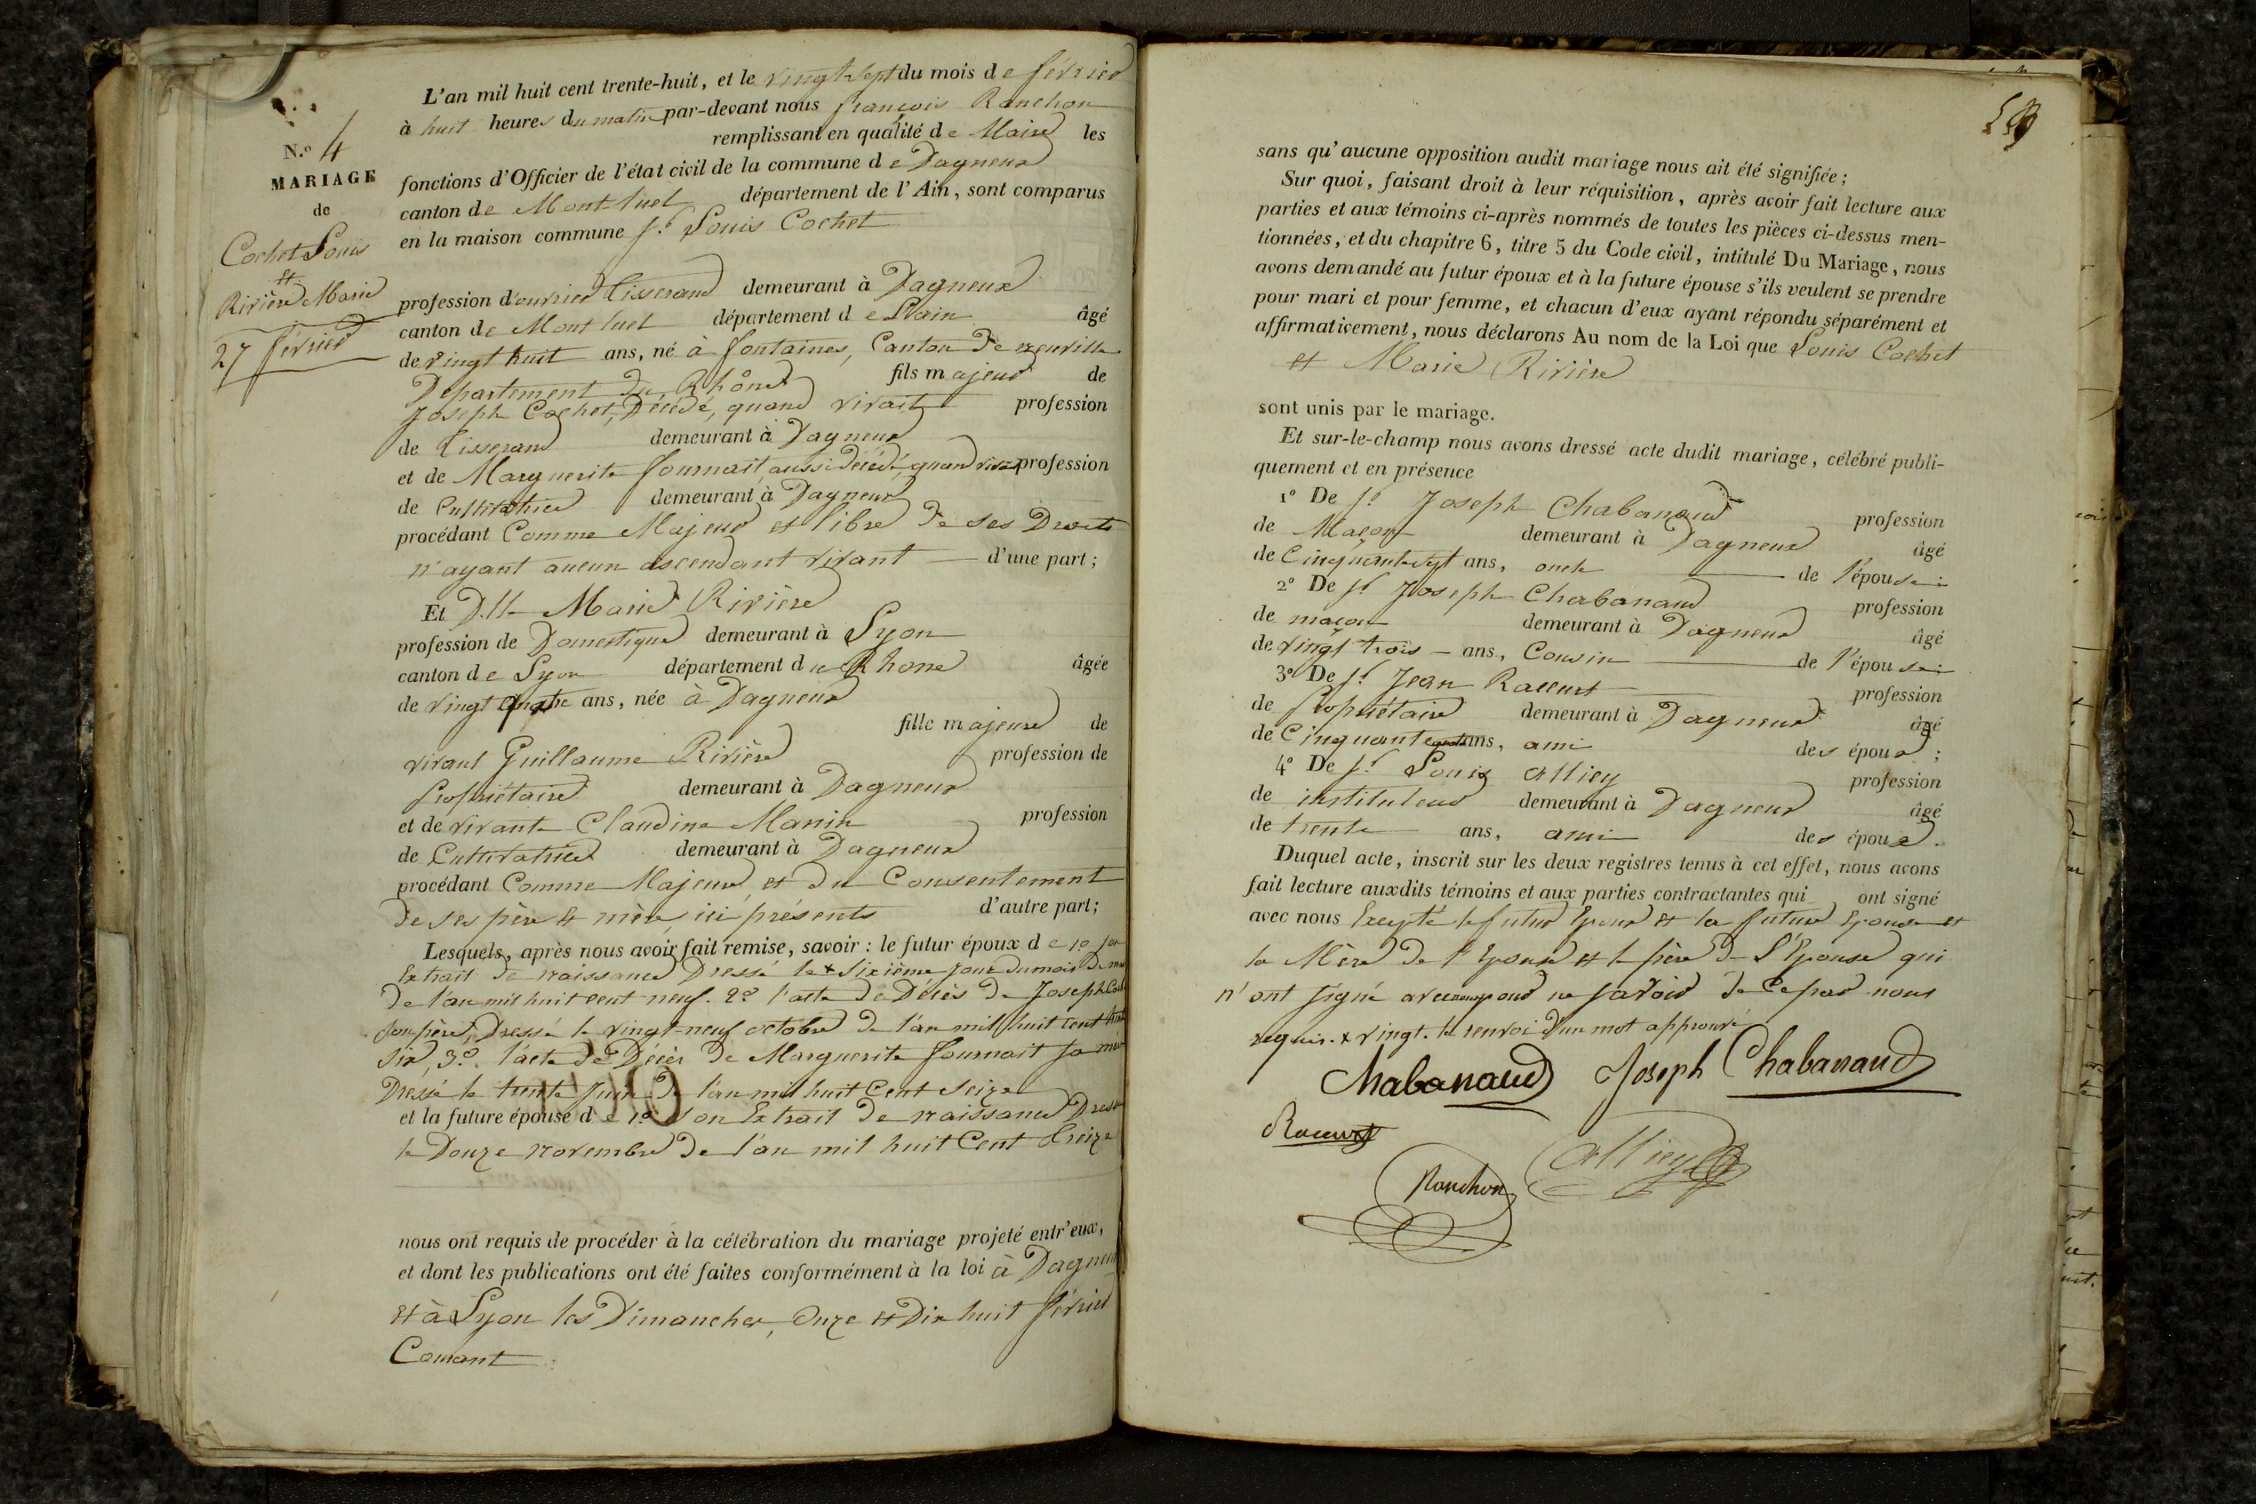 N.º 4
MARIAGE
de
Cochet Louis
et
Rivière Marie
27 février
L'an mil huit cent trente-huit, et le vingt sept du mois de février
à huit heures du matin par-devant nous françois Ranchon
remplissant en qualité de Maire les
fonctions d'Officier de l'état civil de la commune de Dagneux
canton de Montluel département de l'Ain, sont comparus
en la maison commune Sr Louis Cochet
profession d'ouvrier tisserand demeurant à Dagneux
canton de Montluel département de L'ain âgé
de vingt huit ans, né à fontaines, Canton de neuville
Département du Rhône fils majeur de
Joseph Cochet, Décédé, quand vivait profession
de tisserand demeurant à Dagneux
et de Marguerite fournait, aussi décédé, quand vivait profession
de Cultivatrice demeurant à Dagneux
procédant Comme Majeur et libre de ses Droits
n'ayant aucun ascendant vivant d'une part;
Et D.lle Marie Rivière
profession de Domestique demeurant à Lyon
canton de Lyon département du Rhone âgée
de vingt quatre ans, née à Dagneux
fille majeure de
vivant Guillaume Rivière profession de
Propriétaire demeurant à Dagneux
et de vivante Claudine Manin profession
de Cultivatrice demeurant à Dagneux
procédant Comme Majeure, et du Consentement
de ses père & mère, ici présents d'autre part;
Lesquels, après nous avoir fait remise, savoir: le futur époux de 1º son
Extrait de naissance Dressé le + sixième jour du mois de
de l'an mil huit cent neuf. 2º l'acte de Décès de Joseph
son père, Dressé le vingt-neuf octobre de l'an mil huit cent
six, 3º l'acte de Décès de Marguerite fournait sa mère
Dressé le trente Juin de l'an mil huit Cent seize
et la future épouse de 1º son Extrait de naissance Dressé
le Douze novembre de l'an mil huit Cent treize
nous ont requis de procéder à la célébration du mariage projeté entr'eux,
et dont les publications ont été faites conformément à la loi à Dagneux
et à Lyon les Dimanches, Onze et Dix huit février
Courant
sans qu'aucune opposition audit mariage nous ait été signifiée;
Sur quoi, faisant droit à leur réquisition, après avoir fait lecture aux
parties et aux témoins ci-après nommés de toutes les pièces ci-dessus men-
tionnées, et du chapitre 6, titre 5 du Code civil, intitulé Du Mariage, nous
avons demandé au futur époux et à la future épouse s'ils veulent se prendre
pour mari et pour femme, et chacun d'eux ayant répondu séparément et
affirmativement, nous déclarons Au nom de la Loi que Louis Cochet
et Marie Rivière
sont unis par le mariage.
Et sur-le-champ nous avons dressé acte dudit mariage, célébré publi-
quement et en présence
1º De Sr Joseph Chabanaud profession
de Maçon demeurant à Dagneux âgé
de Cinquante sept ans, oncle de l'épouse;
2º De Sr Joseph Chabanaud profession
de maçon demeurant à Dagneux âgé
de vingt trois ans, Cousin de l'épouse;
3º De Sr Jean Raccurt profession
de Propriétaire demeurant à Dagneux âgé
de Cinquante ans, ami des époux;
4º De Sr Louis Alliey profession
de instituteur demeurant à Dagneux âgé
de trente ans, ami des époux.
Duquel acte, inscrit sur les deux registres tenus à cet effet, nous avons
fait lecture auxdits témoins et aux parties contractantes qui ont signé
avec nous Excepté le futur Epoux et la future Epouse et
la Mère de l'Epouse et le père de L'Epouse qui
n'ont signé avec nous pour ne savoir de ce par nous
requis. + vingt. le renvoi d'un mot approuvé
Chabanaud Joseph Chabanaud
Raccurt
Ranchon Alliey